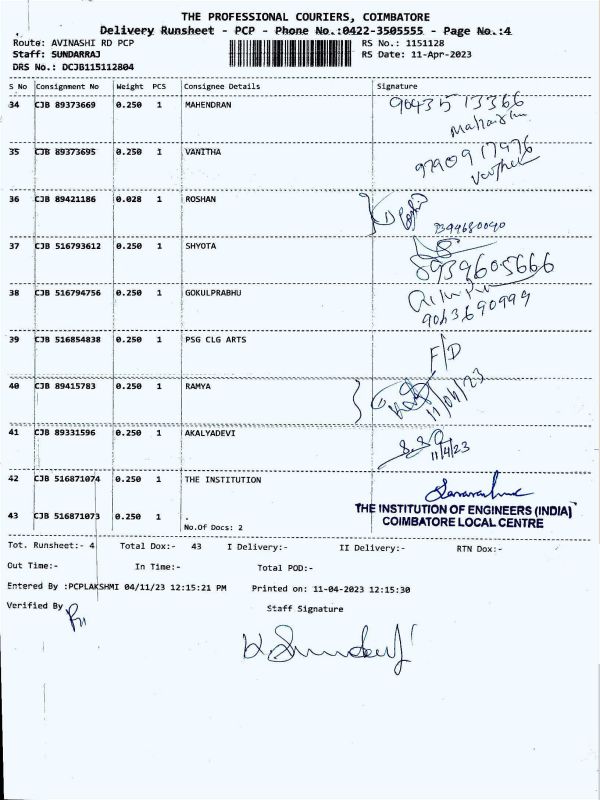 THE PROFESSIONAL COURIERS, COIMBATORE
Delivery Runsheet - PCP - Phone No.:0422-3505555 - Page No.:4
Route: AVINASHI RD PCP RS No.: 1151128
Staff: SUNDARRAJ RS Date: 11-Apr-2023
DRS No.: DCJB115112804
S No Consignment No Weight PCS Consignee Details Signature
34 CJB 89373669 0.250 1 MAHENDRAN 9043513366
35 CJB 89373695 0.250 1 VANITHA 9790917976
36 CJB 89421186 0.028 1 ROSHAN
37 CJB 516793612 0.250 1 SHYOTA 8939605666
38 CJB 516794756 0.250 1 GOKULPRABHU
9063690999
39 CJB 516854838 0.250 1 PSG CLG ARTS F/D
40 CJB 89415783 0.250 1 RAMYA 11/04/23
41 CJB 89331596 0.250 1 AKALYADEVI 11/4/23
42 CJB 516871074 0.250 1 THE INSTITUTION
THE INSTITUTION OF ENGINEERS (INDIA)
43 CJB 516871073 0.250 1 . COIMBATORE LOCAL CENTRE
No.Of Docs: 2
Tot. Runsheet:- 4 Total Dox:- 43 I Delivery:- II Delivery:- RTN Dox:-
Out Time:- In Time:- Total POD:-
Entered By :PCPLAKSHMI 04/11/23 12:15:21 PM Printed on: 11-04-2023 12:15:30
Verified By Staff Signature